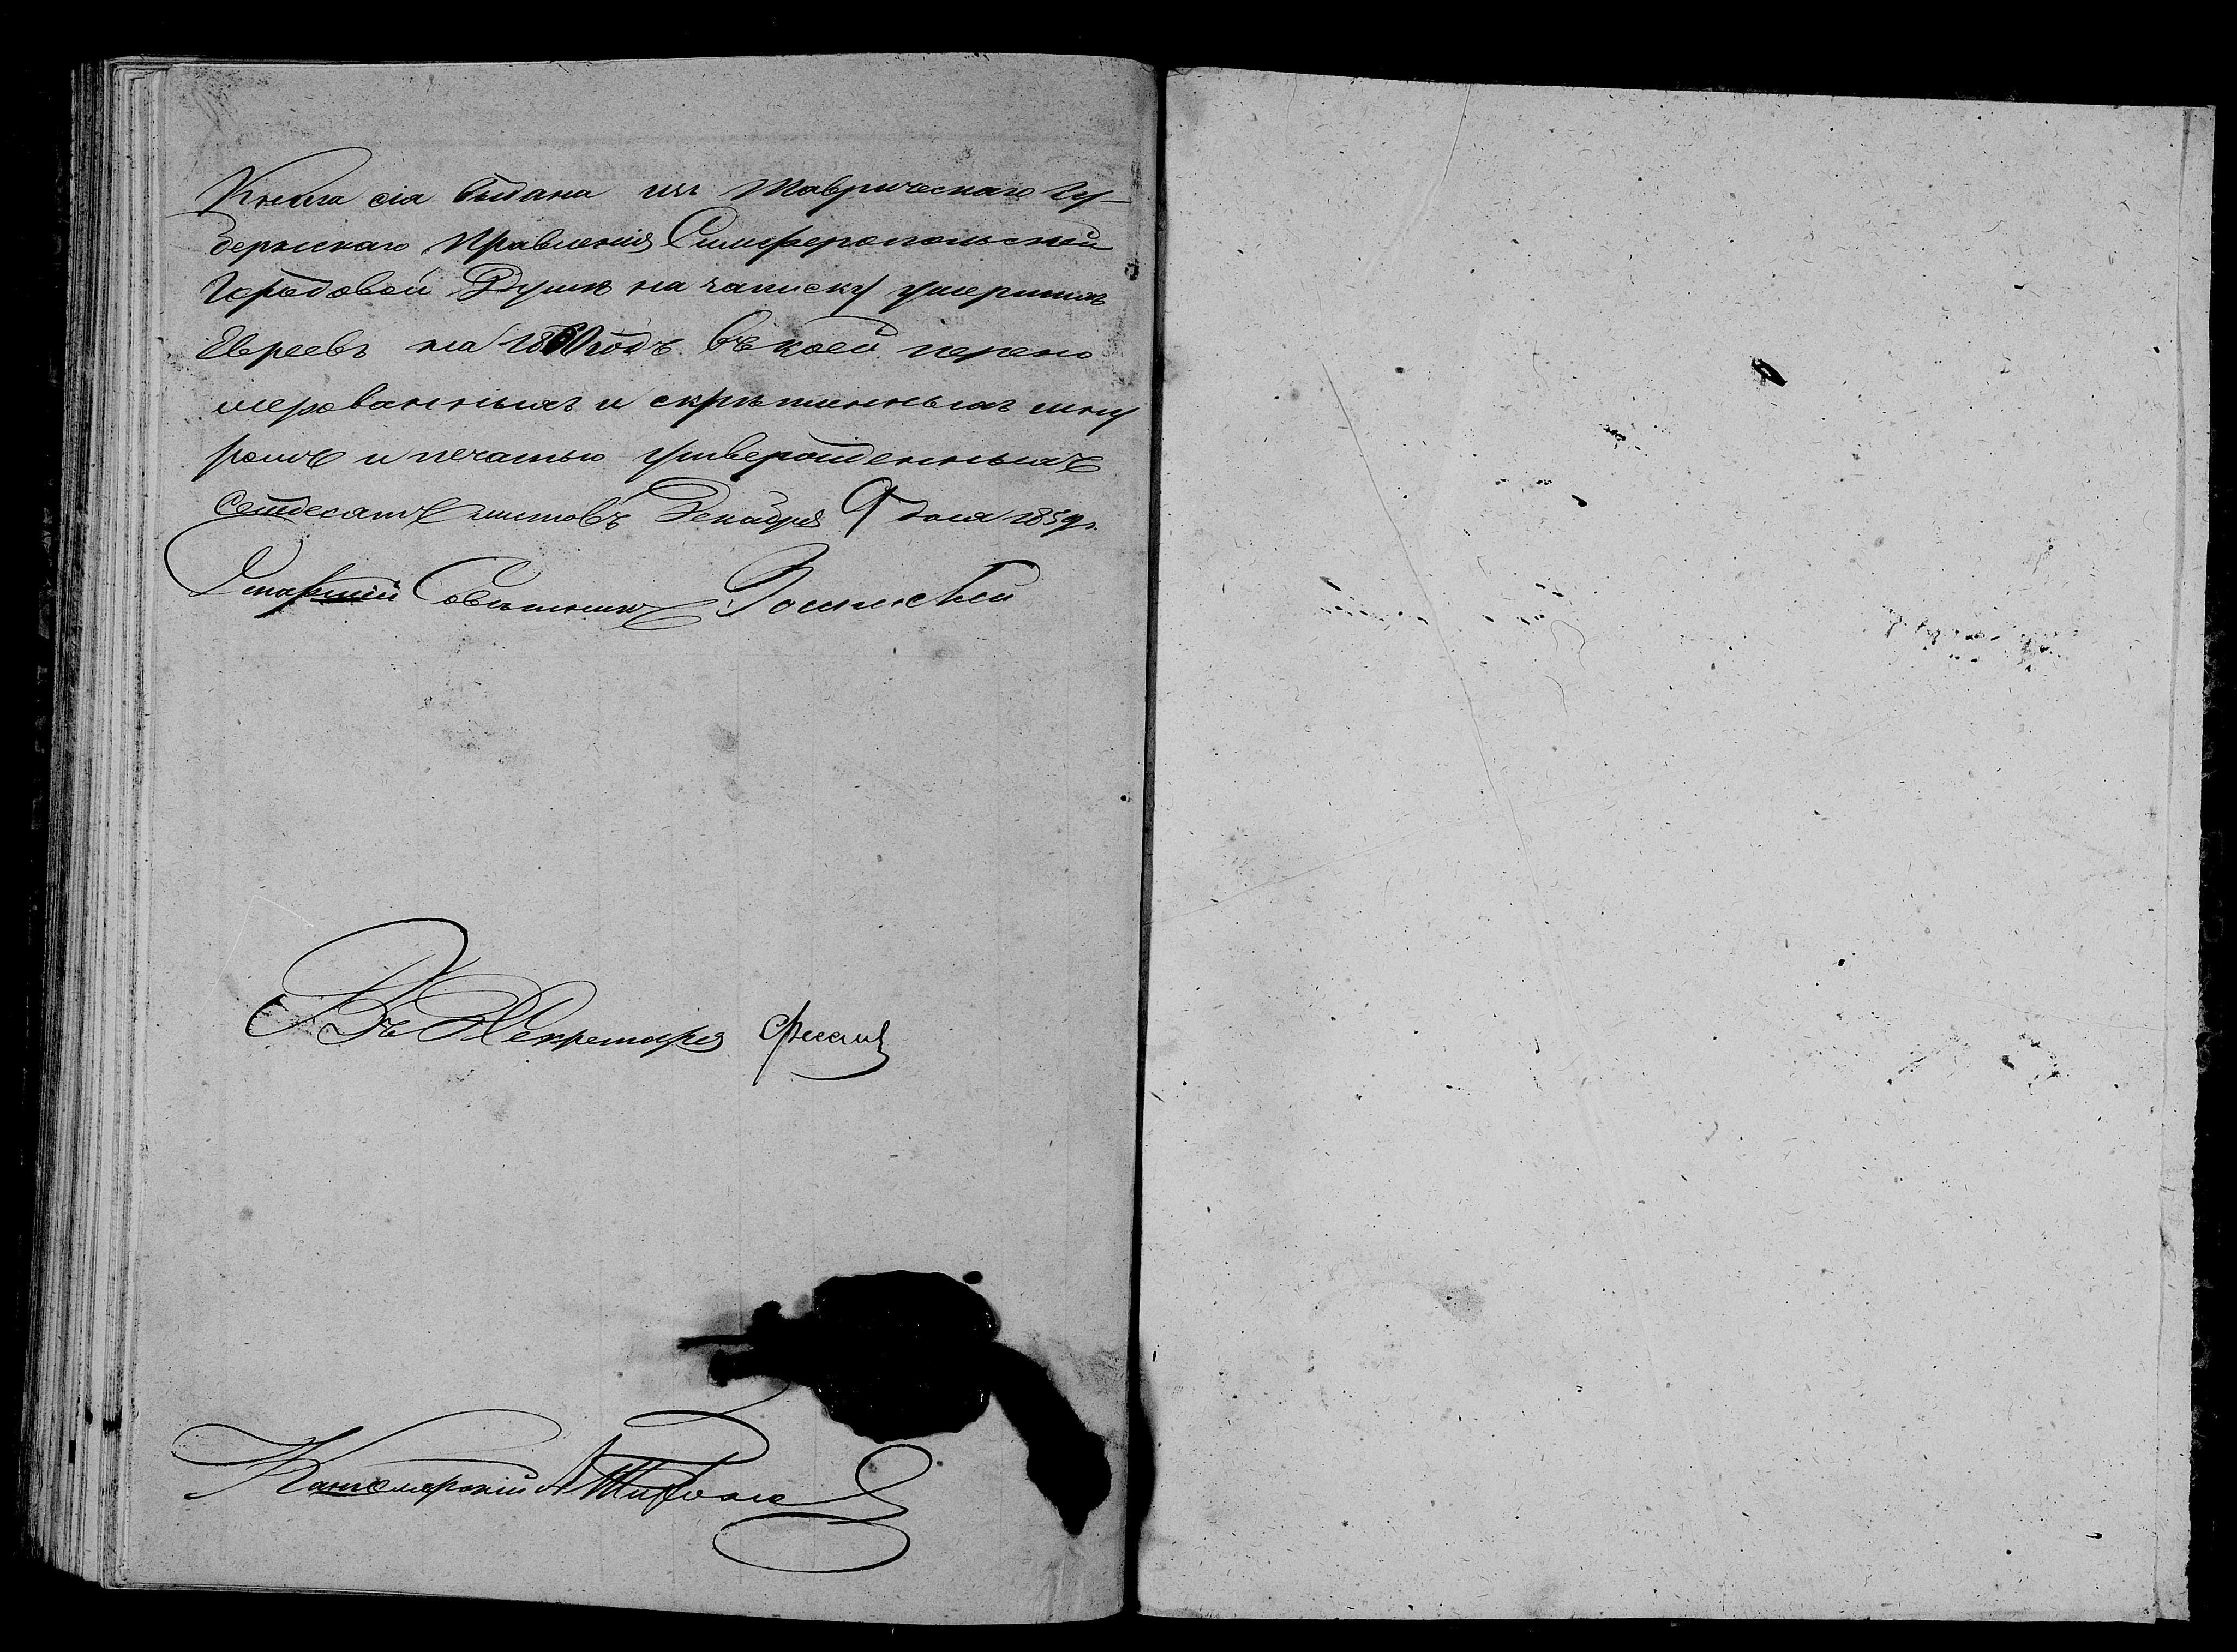 Книга сія выдана изъ Таврическаго Гу-
бернскаго Правленія Симферопольской
Городовой Думѣ на записку умершихъ
Евреевъ на 1860 годъ въ коей перено
мерованныхъ и скрѣпленныхъ шну
ромъ и печатью утвержденныхъ
семдесятъ листовъ Декабря 9 дня 1859 г.
Старшій Совѣтникъ
За Секретаря
Канцелярскій А